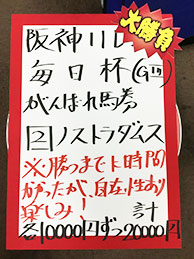 大勝負
阪神11R
毎日杯(GIII)
がんばれ馬券
2 ノストラダムス
※勝つまで上時間
かかったが、自在性あり
楽しみ! 計
各10000円ずつ20000円